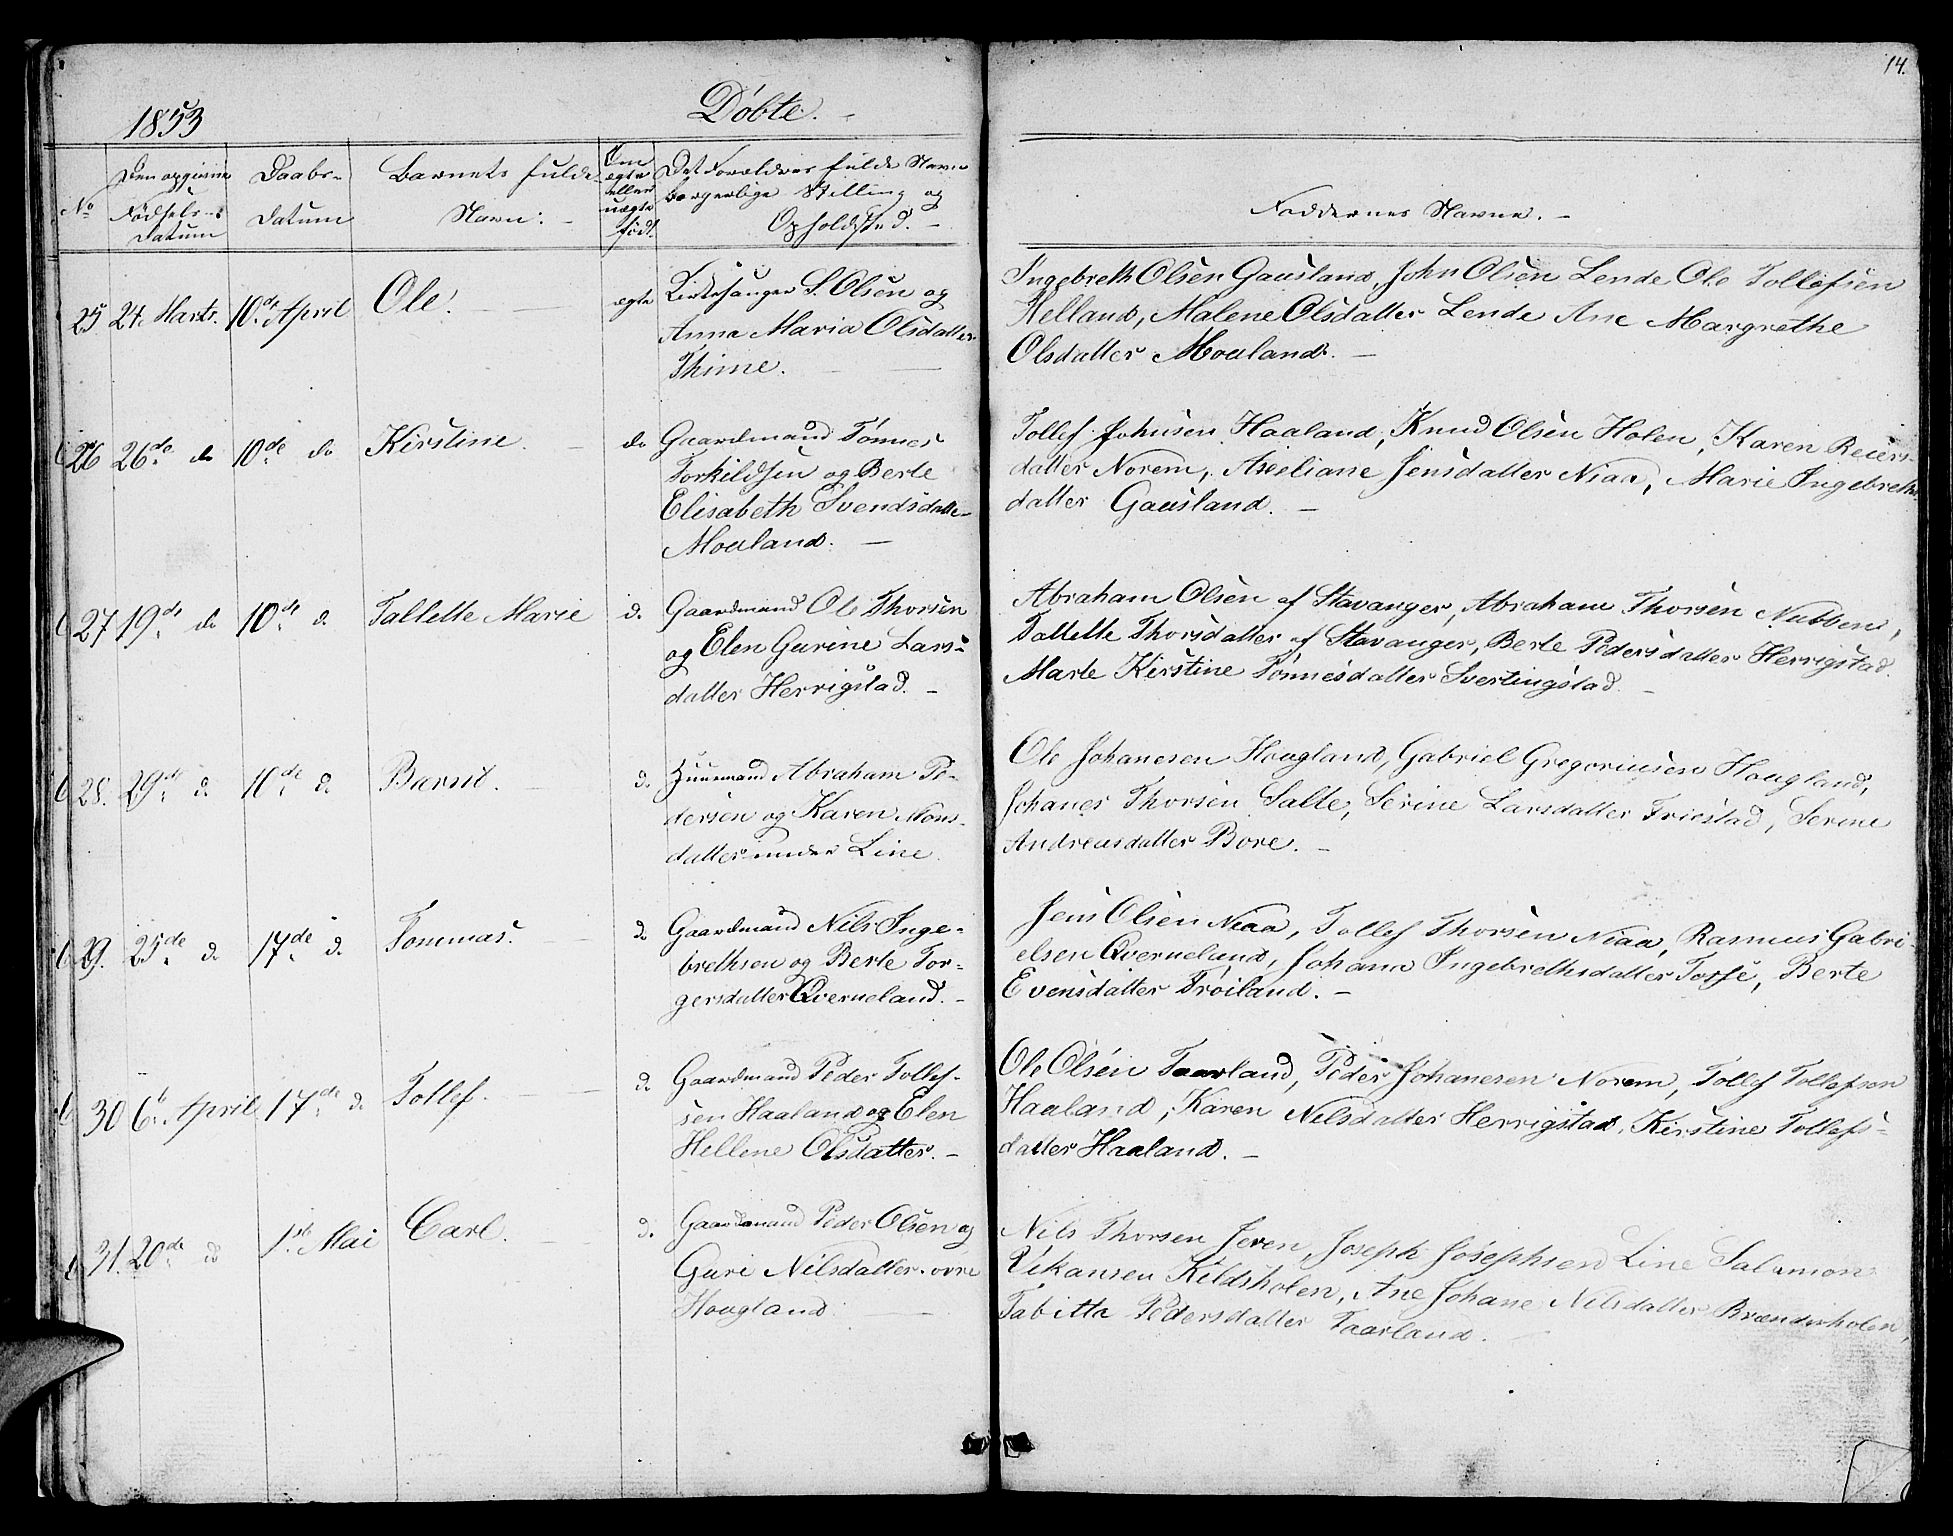 14.
1853
Döbte.
No
Den opgivne Födsels-Datum
Daabs-Datum
Barnets fulde Navn.
Om ægte eller uægte født.
Det Forældres fulde Navn borgerlige Stilling og Opholdsted.
Faddernes Navne.
25 24. Marts. 10de April Ole. ægte Kirkesanger S. Olsen og
Anna Maria Olsdatter
Thime.
Ingebreth Olsen Gausland, John Olsen Lende Ole Tollefsen
Helland, Malene Olsdatter Lende Ane Margrethe
Olsdatter Moaland.
26 26de do 10de do Kirstine. do Gaardmand Tönnes
Torkildsen og Berte
Elisabeth Svendsdatter
Moaland.
Tollef Johnsen Haaland, Knud Olsen Holen, Karen Reiers-
datter Norem, Axeliane Jensdatter Niaa, Marie Ingebreths
datter Gausland.
27 19de do 10de d. Tallette Marie d. Gaardmand Ole Thorsen
og Elen Gurine Lars-
datter Herrigstad.
Abraham Olsen af Stavanger, Abraham Thorsen Nubben,
Tallette Thorsdatter af Stavanger, Berte Pedersdatter Herrigstad
Marte Kirstine Tönnesdatter Svertingstad.
28. 29de d. 10de d. Bernt. d. Huusmand Abraham Pe-
dersen og Karen Mons-
datter under Line.
Ole Johanesen Hougland, Gabriel Gregoriusen Hougland,
Johanes Thorsen Salte, Serine Larsdatter Friestad, Serine
Andreasdatter Bore.
29. 25de d. 17de d. Tommas. d. Gaardmand Nils Inge-
brethsen og Berte Tor-
gersdatter Qverneland.
Jens Olsen Niaa, Tollef Thorsen Niaa, Rasmus Gabri-
elsen Qverneland, Johana Ingebrethsdatter Tosse, Berte
Evensdatter Fröiland.
30 6te April 17de d. Tollef. d. Gaardmand Peder Tollef-
sen Haaland og Elen
Hellene Olsdatter.
Ole Olsen Taarland, Peder Johanesen Norem, Tollef Tollefsen
Haaland, Karen Nilsdatter Herrigstad, Kirstine Tollefs-
datter Haaland.
31. 20de d. 1ste Mai Carl. d. Gaardmand Peder Olsen og
Guri Nilsdatter ovre
Hougland
Nils Thorsen Jeren, Joseph Josephsen Line Salamon
Vikansen Kildsholen, Ane Johane Nilsdatter Brænderholen,
Tabitta Pedersdatter Taarland.